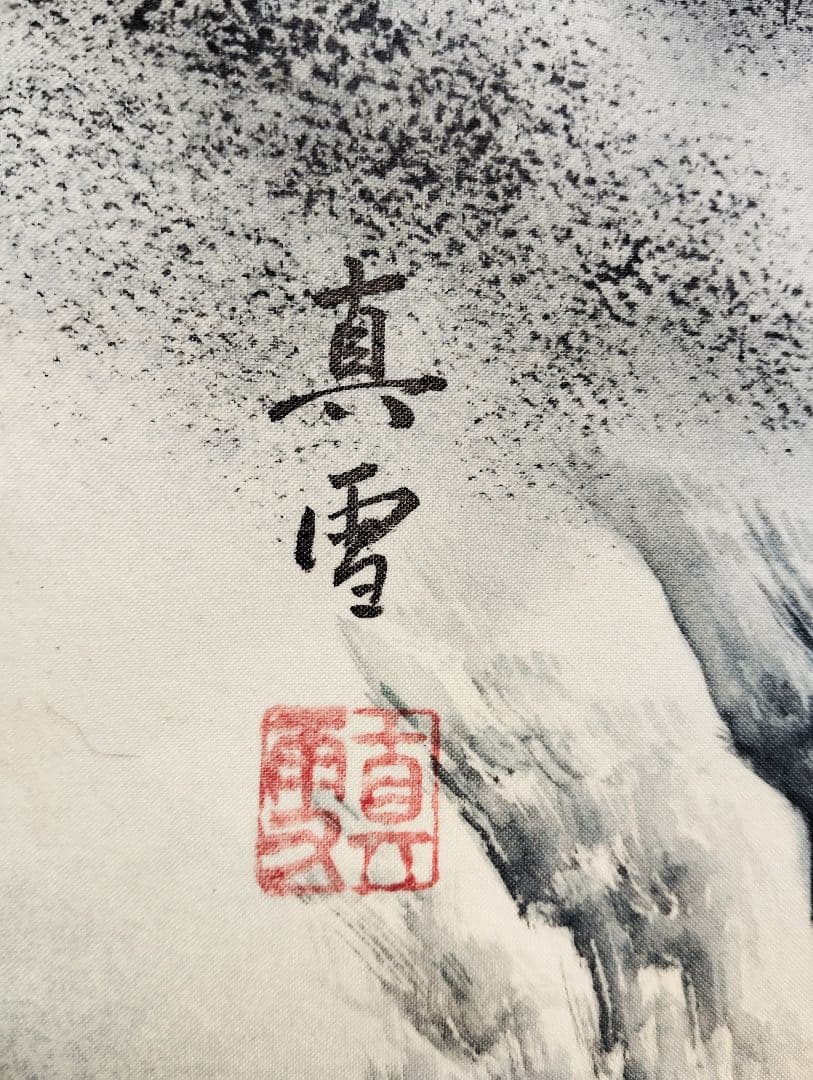 真雪
真雪